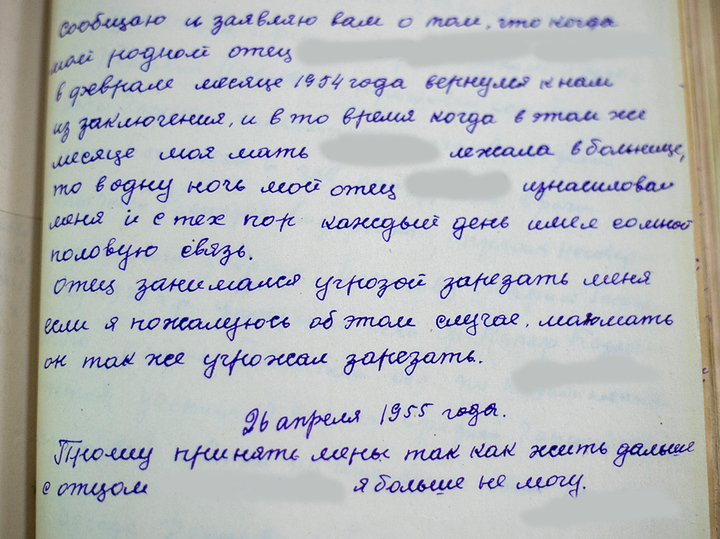 сообщаю и заявляю вам о том, что когда
мой родной отец
в феврале месяце 1954 года вернулся к нам
из заключения, и в то время когда в этом же
месяце моя мать лежала в больнице,
то в одну ночь мой отец изнасиловал
меня и с тех пор каждый день имел со мной
половую связь.
Отец занимался угрозой зарезать меня
если я пожалуюсь об этом случае, мать
он так же угрожал зарезать.
26 апреля 1955 года.
Прошу принять меры так как жить дальше
с отцом я больше не могу.